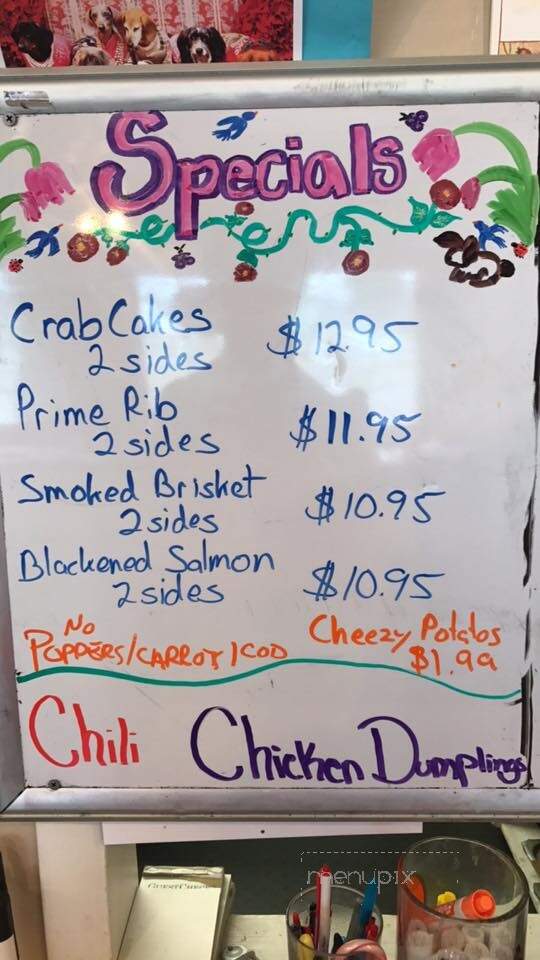 Specials
Crab Cakes $12.95
2 sides
Prime Rib $11.95
2 sides
Smoked Brisket $10.95
2 sides
Blackened Salmon $10.95
2 sides
No
POPPERS/CARROT/COD
Cheezy Potatos
$1.99
Chili Chicken Dumplings
GUEST CHECK
menupix